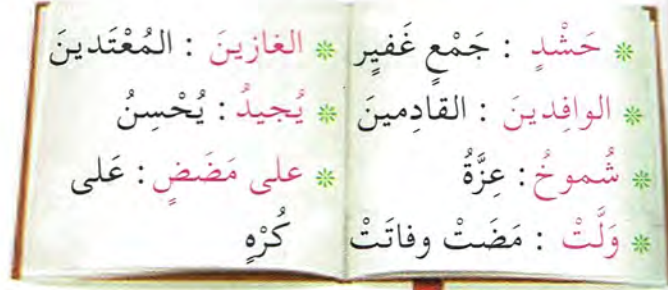 ❊ حَشْدٍ : جَمْعٍ غَفيرٍ
❊ الوافِدينَ : القادِمينَ
❊ شُموخُ : عِزَّةُ
❊ وَلَّتْ : مَضَتْ وفاتَتْ
❊ الغازينَ : المُعْتَدينَ
❊ يُجيدُ : يُحْسِنُ
❊ على مَضَضٍ : عَلى
كُرْهٍ